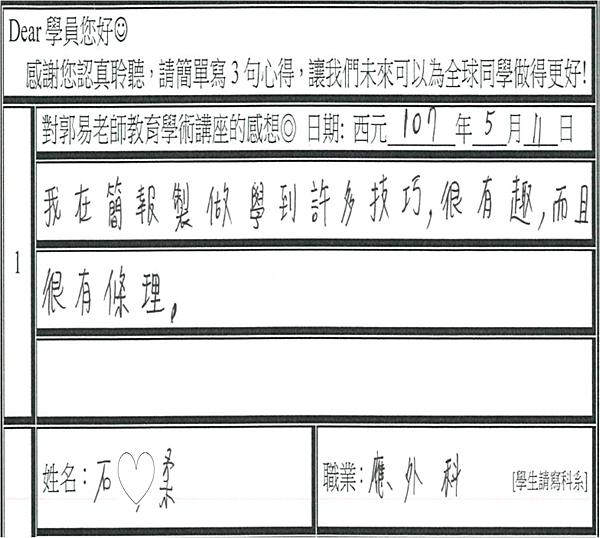 Dear 學員您好☺
感謝您認真聆聽，請簡單寫 3 句心得，讓我們未來可以為全球同學做得更好!
對郭易老師教育學術講座的感想◎ 日期: 西元 107 年 5 月 11 日
1
我在簡報製做學到許多技巧,很有趣,而且
很有條理。
姓名：石♡柔
職業：應、外科 [學生請寫科系]